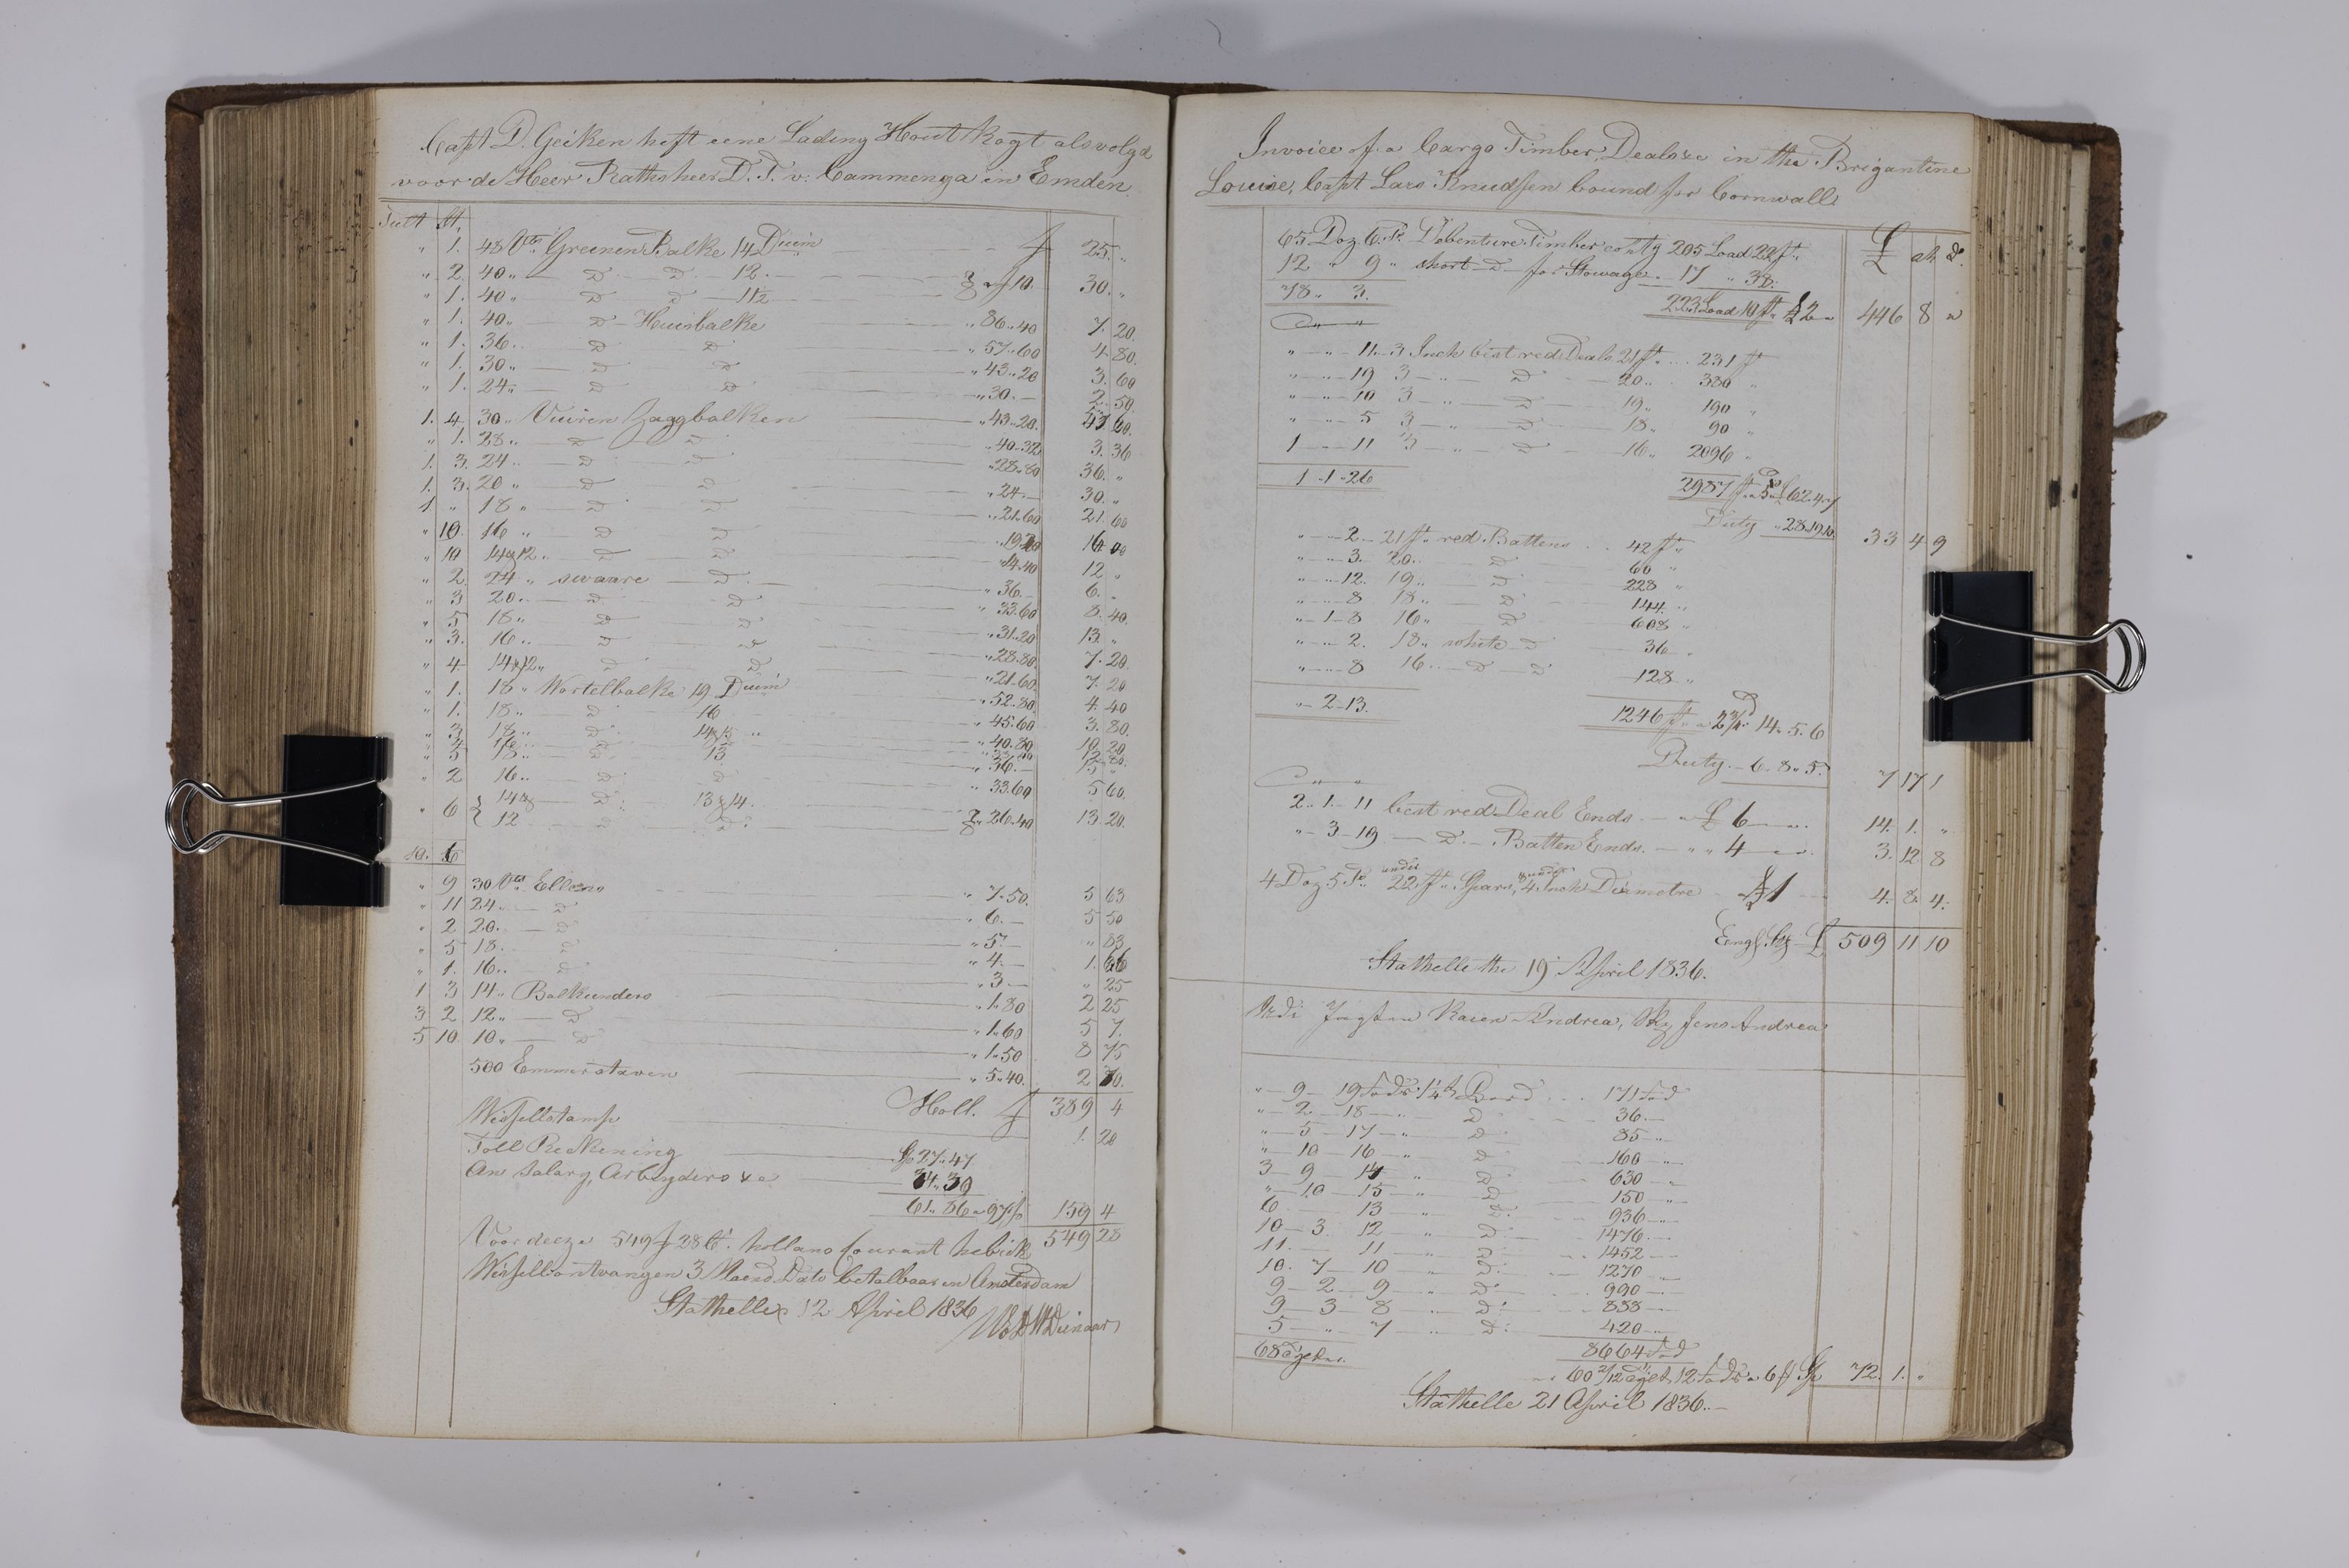 Capt D. Geiken heft eene Lading Hout kogt als volgd
voor de Heer Rathsheer D. T. v. Cammenga in Emden.
Tult St.
" 1. 48 Vts Greenen Balke 14 Duim f 25. "
" 2. 40 " D D 12. 30. "
" 1. 40 " D D 11½ a f 10.
" 1. 40 " D Huisbalke " 86.40 7. 20
" 1. 36 " D D " 57.60 4. 80.
" 1. 30 " D D " 43.20 3. 60
" 1. 24 " D D " 30.— 2. 50
1. 4. 30 " Vuiren Zaggbalken " 43.20. 57 60.
" 1. 28 " D D " 40.32 3. 36
1. 3. 24 " D D " 28.80 36. "
1. 3. 20 " D D " 24.— 30. "
1. " 18 " D D " 21.60 21. 60
" 10. 16 " D D " 19.20 16 00
" 10 14 & 12 " D D " 14.40 12 "
" 2. 24 " swaare D. " 36.— 6. "
" 3 20 " D D " 33.60 8. 40.
" 5 18 " D D " 31.20 13. "
" 3. 16 " D D " 28.80. 7. 20.
" 4 14 & 12 " D D " 21.60. 7. 20
" 1. 18 " Wortelbalke 19 Duim " 52.80. 4. 40
" 1. 18 " D 16 " 45.60 3. 80.
" 3 18 " D 14 & 15 " " 40.80 10 20
" 5 18 " D 13 " 36.— 15 "
" 2 16 " D D " 33.60 5 60.
" 6 { 14 & D: 13 & 14.
12 D D: " 26.40 13. 20.
10. 6
" 9 30 Vts Ellens " 7.50. 5 63
" 11 24 D " 6.— 5 50
" 2 20. D " 5.— " 83
" 5 18. D " 4.— 1. 66
" 1. 16 " D " 3.— " 25
1 3 14 " Balkenders " 1.80 2 25
3 2 12 " D " 1.60 5 7.
5 10 10 " D " 1.50 8 75
500 Emmerstaven " 5.40. 2 70.
Holl. f 389 4
Wissellstamp 1. 20
Toll Reckening Sp 27.47
An Salary, Arbeyders &c 34.39
61.86 a 97 ß 159 4
549 28
Voor deeze 549 f 28 Ct. holland Courant heb ik
Wissell ontvangen 3 Maend Dato betalbaar in Amsterdam
Stathelle 12 April 1836
Invoice of a Cargo Timber, Deals &c in the Brigantine
Louise, Capt Lars Knudsen bound for Cornwall.
£ sh d.
65 Doz 6 Ps. Debenture Timber contg 205 Load 22 ft.
12 " 9 " short D for Stowage 17 " 38.
78 " 3. 223 Load 10 ft a £2 " 446 8 "
" " 11 3 Inch best red Deals 21 ft. 231 ft
" " 19 3 " D 20 " 380 "
" " 10 3 " D 19 " 190 "
" " 5 3 " D 18 " 90 "
1 " 11 3 " D 16 " 2096 "
1 1 26 2987 ft a 5d £62.4.7
Duty " 28.19.10. 33 4 9
" " 2 21 ft. red Battens 42 ft "
" " 3. 20. D 60 "
" " 12. 19 " D 228 "
" " 8 18 " D 144 "
" 1 8 16 " D 608 "
" " 2. 18 " white D 36 "
" " 8 16 " D D 128 "
" 2 13. 1246 ft a 2¾d 14.5.6
Duty 6.8.5. 7 17 1
2. 1. 11 best red Deal Ends a £ 6 " 14. 1. "
" 3 19 D. Batten Ends " " 4 " 3. 12 8
4 Doz 5 Ps under 22 ft. Spars, under 4 Inch Diametre £1 4. 8. 4.
Engl. Stg £ 509 11 10
Stathelle the 19 April 1836.
Jagten Karen Andrea, Jens Andrea
" 9 19 Fods 1¼ t. Bord 171 Fod
" 2 18 " D 36 "
" 5 17 " D 85 "
" 10 16 " D 160 "
3 9 14 " D 630 "
" 10 15 " D 150 "
6 13 " D 936 "
10 3 12 " D: 1476 "
11. 11 " D: 1452 "
10. 7 10 " D: 1270 "
9 2 9 " D: 990 "
9 3 8 " D: 888 "
5 " 7 " D: 420 "
68 8664 Fod
60 2/12 12 Fods a 6 ß Sp 72. 1. "
Stathelle 21 April 1836.